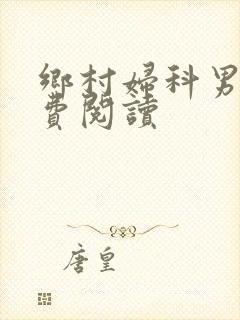 鄉村婦科男
費閱讀
唐皇